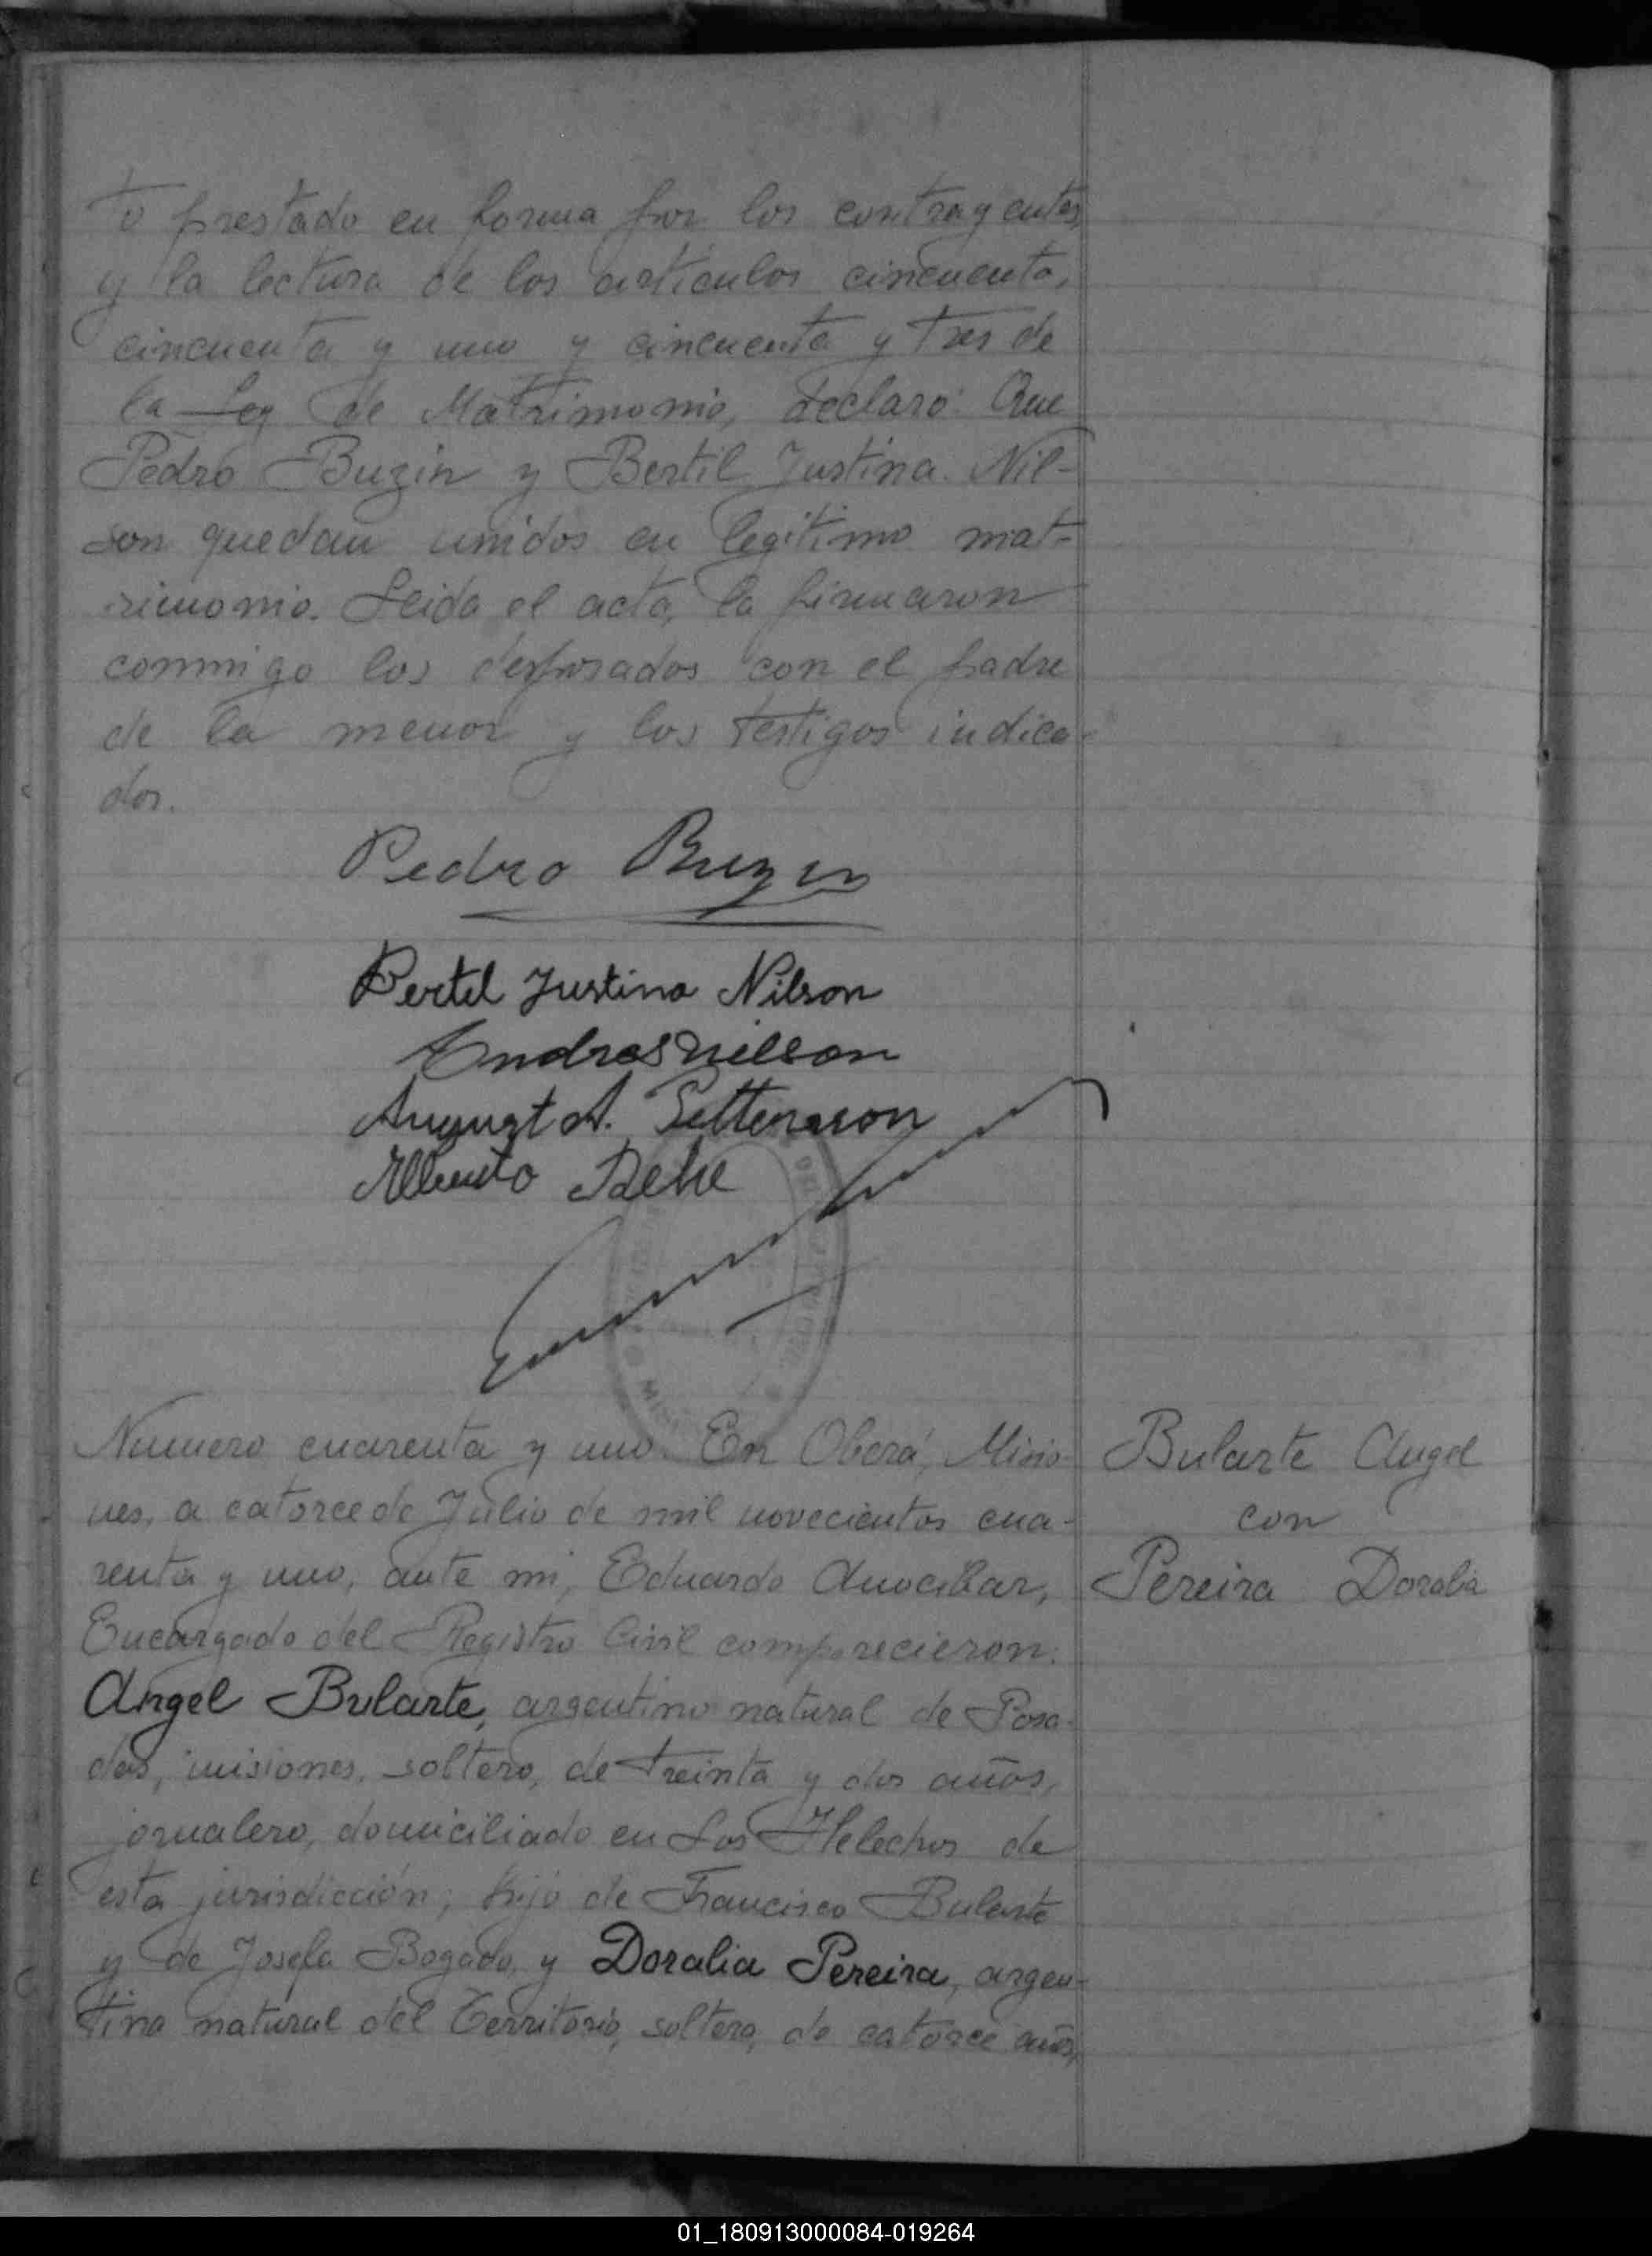 to prestado en forma por los contrayentes,
y la lectura de los artículos cincuenta,
cincuenta y uno y cincuenta y tres de
la Ley de Matrimonio, declaro: Que
Pedro Buzin y Bertil Justina Nil-
son quedan unidos en legitimo mat-
rimonio. Leida el acta, la firmaron
conmigo los desposados con el padre
de la menor y los testigos indica-
dos.
Pedro Buzin
Bertil Justina Nilson
Andres Nilson
August A. Pettersson
Alberto
Numero cuarenta y uno. En Oberá, Misio-
nes, a catorce de Julio de mil novecientos cua-
renta y uno, ante mi, Eduardo
Encargado del Registro Civil comparecieron:
Angel Bularte, argentino natural de Posa-
das, misiones, soltero, de treinta y dos años,
jornalero, domiciliado en Los Helechos de
esta jurisdicción, hijo de Francisco Bularte
y de Josefa Bogado, y Doralia Pereira, argen-
tina natural del Territorio, soltera, de catorce años,
Bularte Angel
con
Pereira Doralia
01_180913000084-019264